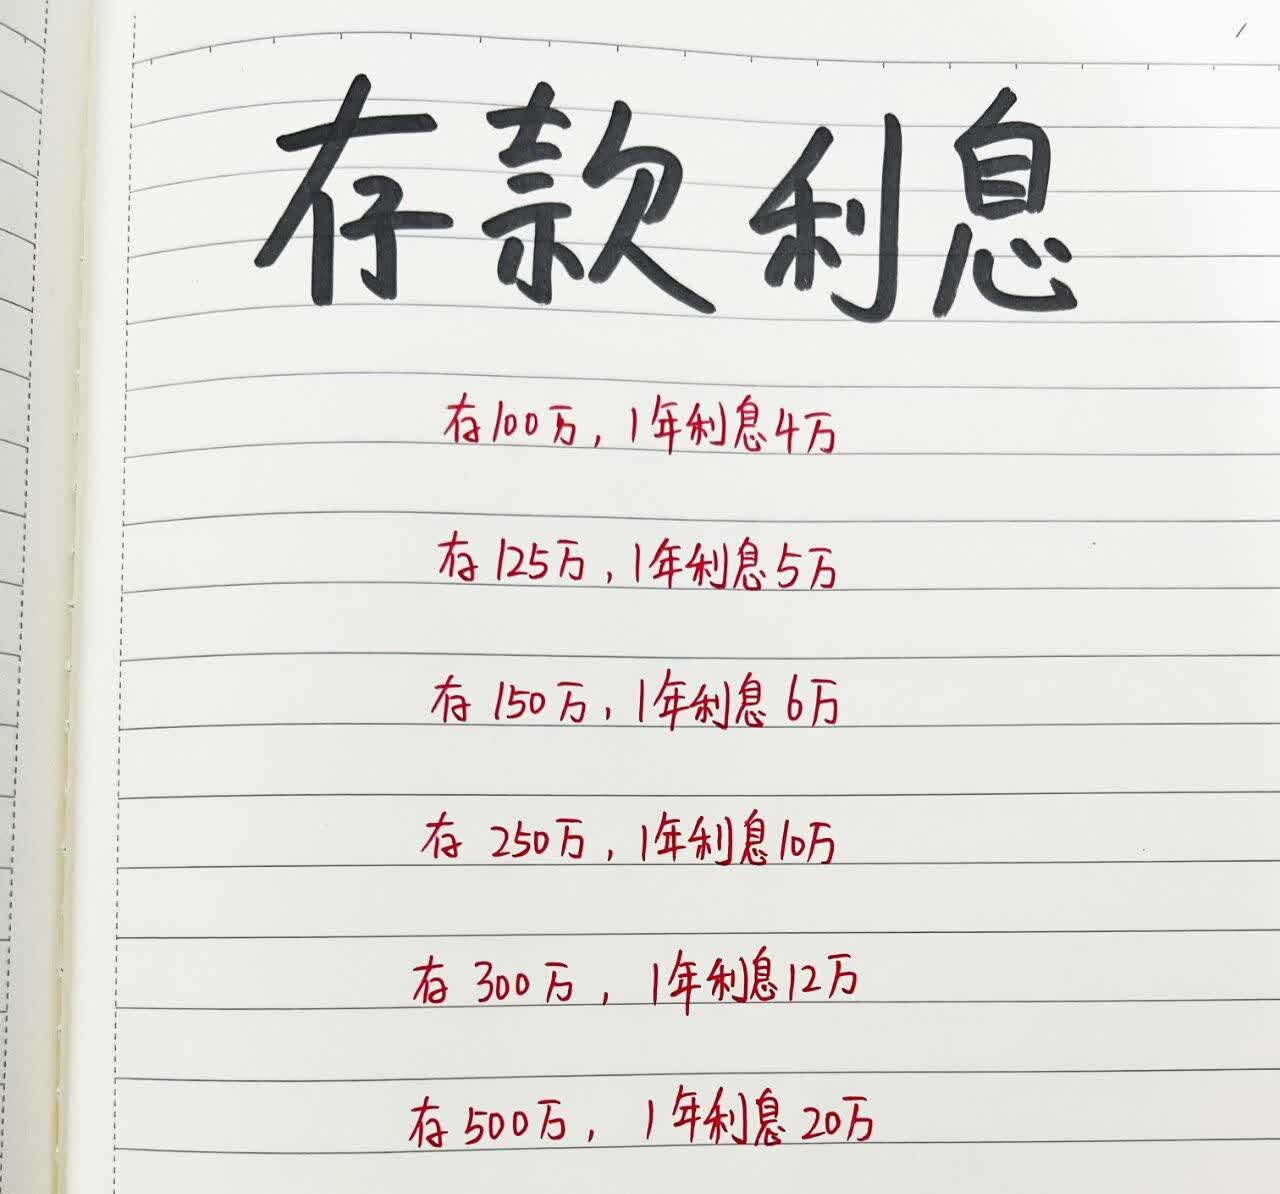 存款利息
存100万，1年利息4万
存125万，1年利息5万
存150万，1年利息6万
存250万，1年利息10万
存300万，1年利息12万
存500万，1年利息20万